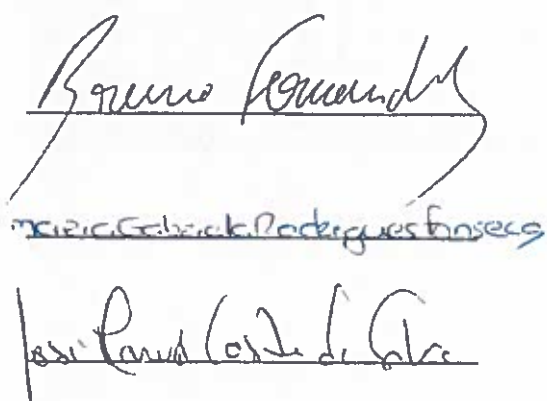 Bruno Fernandes
Maria Gabriela Rodrigues Fonseca
José Costa